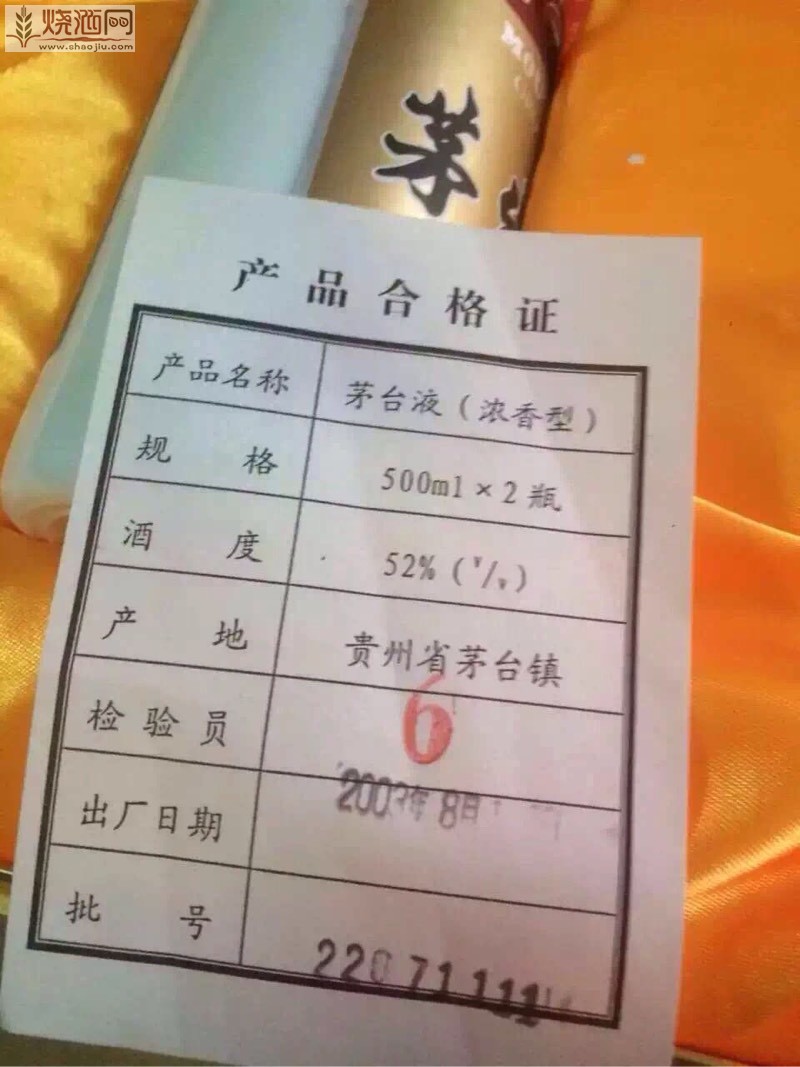 烧酒网
www.shaojiu.com
茅
产品合格证
产品名称 茅台液（浓香型）
规格 500ml×2瓶
酒度 52%（V/V）
产地 贵州省茅台镇
检验员 6
出厂日期 8
批号